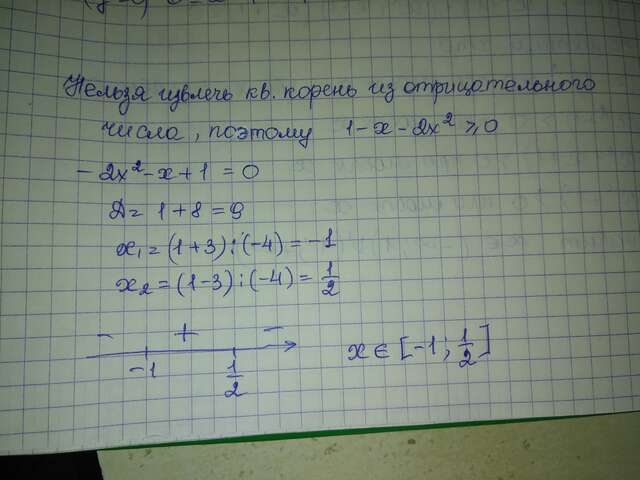 Нельзя извлечь кв. корень из отрицательного
числа, поэтому 1-x-2x² ≥ 0
-2x²-x+1 = 0
Д = 1+8 = 9
x₁ = (1+3):(-4) = -1
x₂ = (1-3):(-4) = 1/2
- + -
-1 1/2
x ∈ [-1; 1/2]